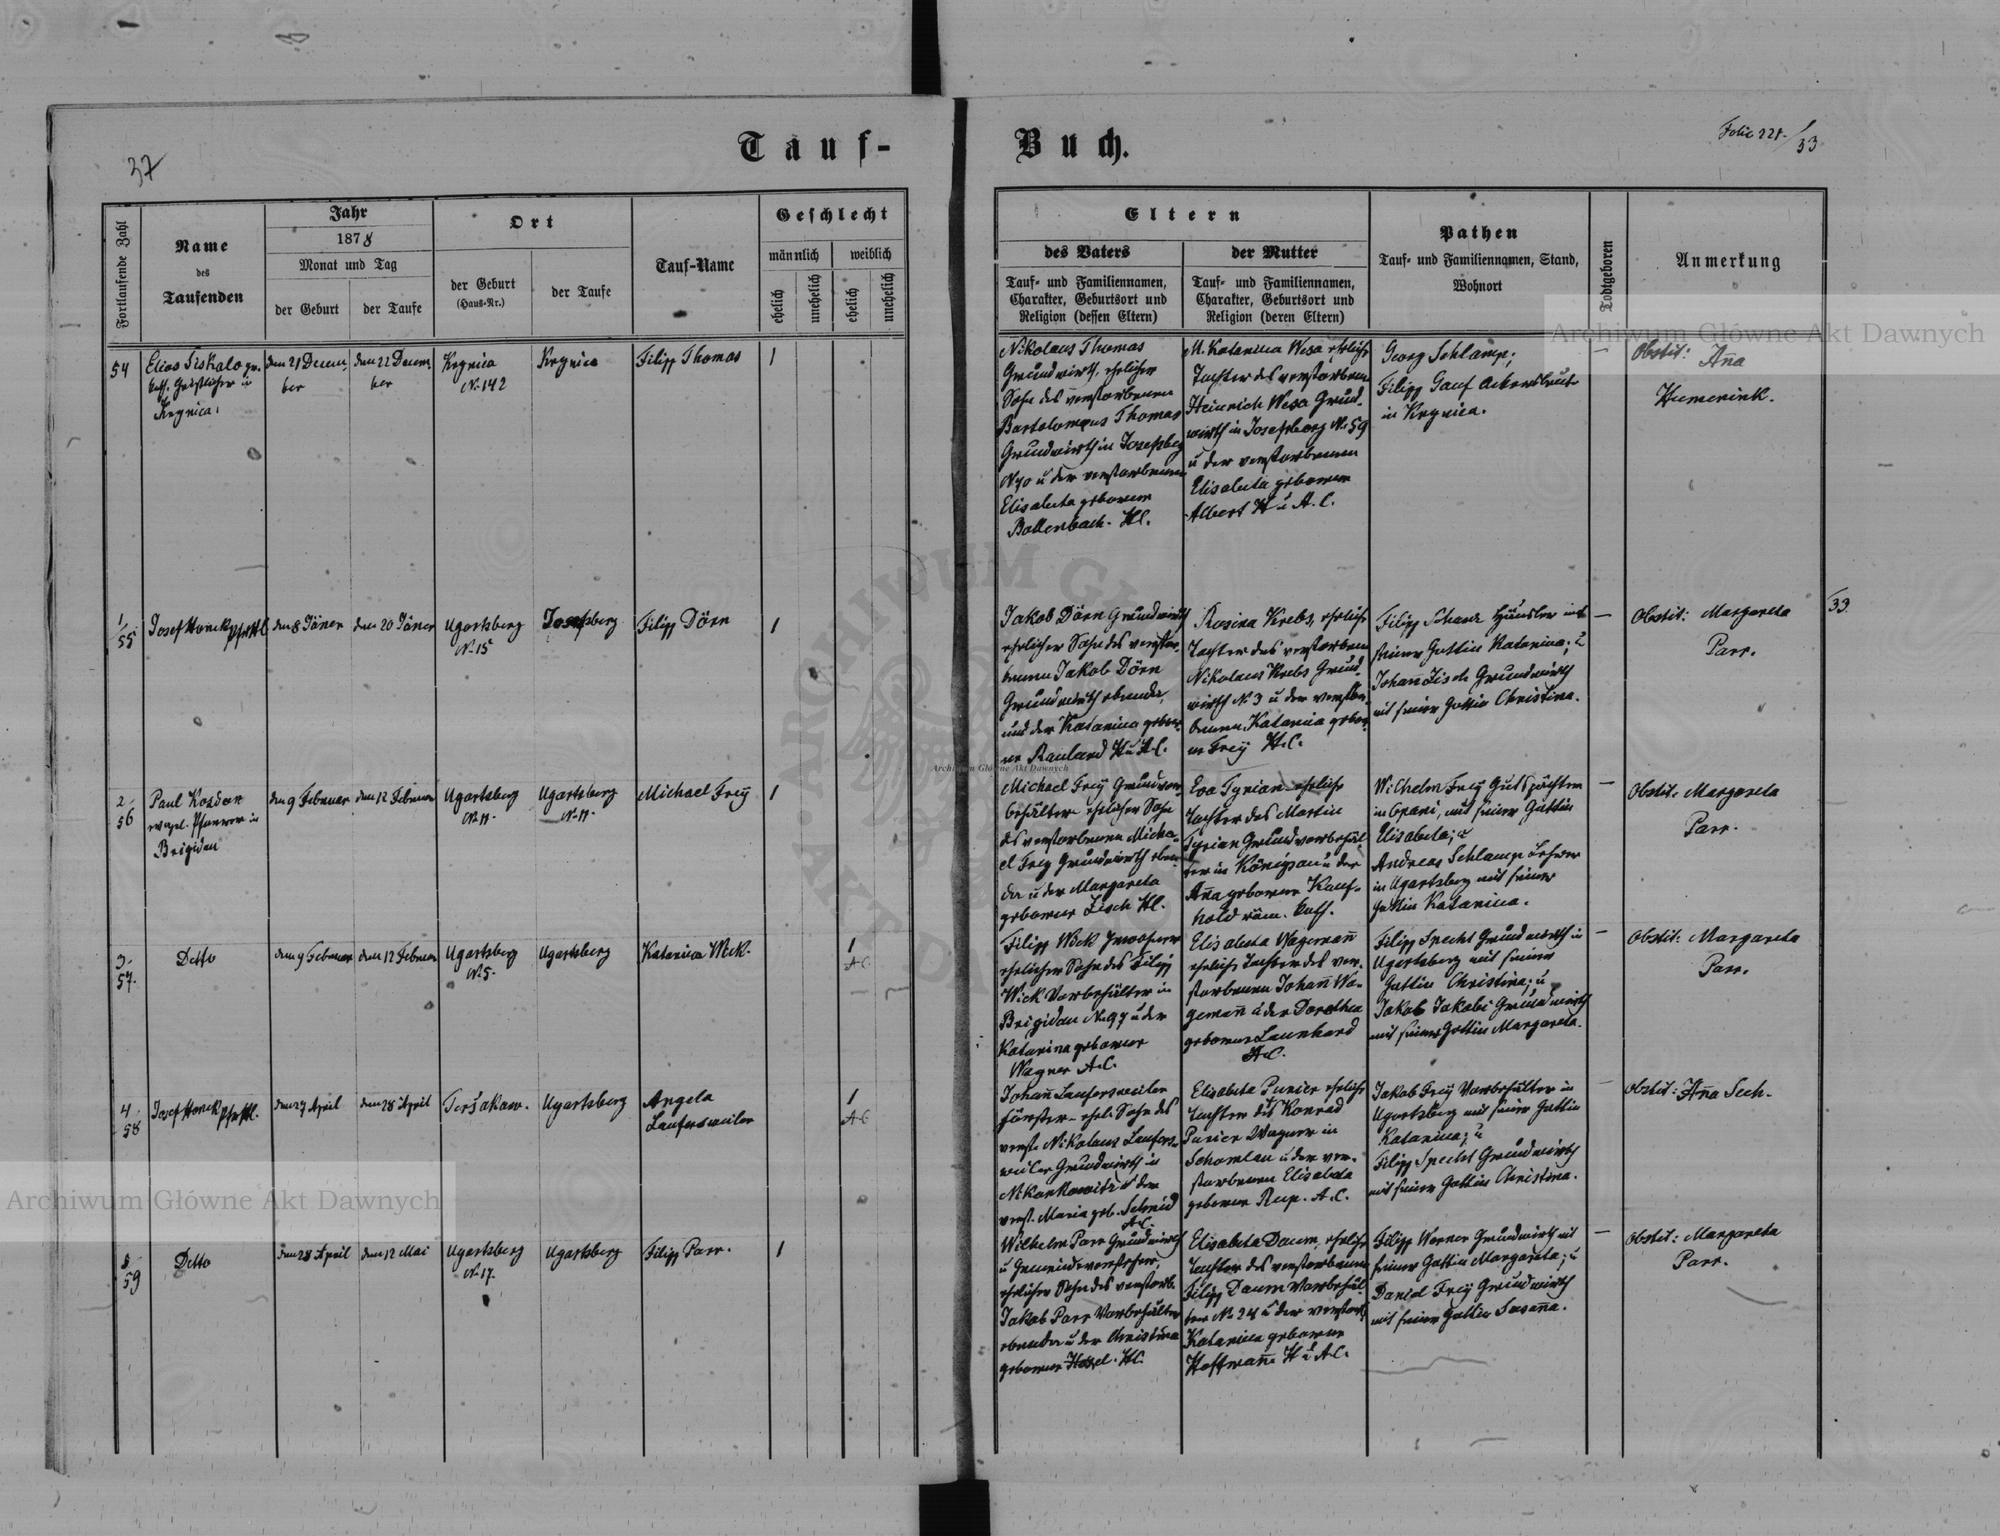 Tauf-
Buch.
37
Folio 221. / 33
Fortlaufende Zahl
Name
des
Taufenden
Jahr
1878
Monat und Tag
der Geburt
der Taufe
Ort
der Geburt
(Haus-Nr.)
der Taufe
Tauf-Name
Geschlecht
männlich
weiblich
ehelich
unehelich
ehelich
unehelich
Eltern
des Vaters
Tauf- und Familiennamen,
Charakter, Geburtsort und
Religion (dessen Eltern)
der Mutter
Tauf- und Familiennamen,
Charakter, Geburtsort und
Religion (deren Eltern)
Pathen
Tauf- und Familiennamen, Stand,
Wohnort
Todtgeboren
Anmerkung
54
Elias Fiskalo gr.
kath. Geistlicher in
Krynica.
den 21 Decem
ber
den 22 Decem
ber
Krynica
No 142
Krynica
Filipp Thomas
1
Nikolaus Thomas
Grundwirth, ehelicher
Sohn des verstorbenen
Bartolomeus Thomas
Grundwirth in Josefsberg
No 70 u der verstorbenen
Elisabeta geborener
Bollenbach. HC.
M. Katarina Wesa eheliche
Tochter des verstorbenen
Heinrich Wesa Grund-
wirth in Josefsberg No 59
u der verstorbenen
Elisabeta geborener
Albert H u A.C.
Georg Schlamp;
Filipp Gauf Ackersleute
in Krynica.
—
Obstit: Ana
Humenink.
1/55
Josef Honek PfrHC
den 8 Jäner
den 20 Jäner
Ugartsberg
No 15
Josefsberg
Filipp Dörn
1
Jakob Dörn Grundwirth
ehelicher Sohn des verstor-
benen Jakob Dörn
Grundwirth ebenda,
und der Katarina gebore-
ne Rauland H u A.C.
Rosina Krebs, eheliche
Tochter des verstorbenen
Nikolaus Krebs Grund-
wirth No 3 u der verstor-
benen Katarina gebor-
ne Frey H.C.
Filipp Schanz Häusler mit
seiner Gattin Katarina; u
Johan Zisch Grundwirth
mit seiner Gattin Christina.
—
Obstit: Margareta
Parr.
33
2/56
Paul Kozdon
evagel. Pfarrer in
Brigidau
den 9 Februar
den 12 Februar
Ugartsberg
No 11.
Ugartsberg
No 11.
Michael Frey
1
Michael Frey Grundvor-
behälter ehelicher Sohn
des verstorbenen Micha-
el Frey Grundwirth eben
da u der Margareta
geborener Zisch HC.
Eva Tyrian eheliche
Tochter des Martin
Tyrian Grundvorbehäl-
ter in Königsau u der
Ana geborener Kauf-
hold röm. kath.
Wilhelm Frey Gutspächter
in Opani, mit seiner Gattin
Elisabeta; u
Andreas Schlamp Lehrer
in Ugartsberg mit seiner
Gattin Katarina.
—
Obstit: Margareta
Parr.
3/57.
Detto
den 9 Februar
den 12 Februar
Ugartsberg
No 5.
Ugartsberg
Katarina Wick.
1
A.C
Filipp Wick Inwohner
ehelicher Sohn des Filipp
Wick Vorbehälter in
Brigidau No 97 u der
Katarina geborener
Wagner A.C.
Elisabeta Wageman
eheliche Tochter des ver-
storbenen Johan Wa-
geman u der Dorothea
geborener Leonhard
A.C.
Filipp Specht Grundwirth in
Ugartsberg mit seiner
Gattin Christina; u
Jakob Jakobi Grundwirth
mit seiner Gattin Margareta.
—
Obstit: Margareta
Parr.
4/58
Josef Honek PfrHC.
den 27 April
den 28 April
Teršakaw.
Ugartsberg
Angela
Laufersweiler
1
A.C
Johan Laufersweiler
Förster ehel. Sohn des
verst. Nikolaus Laufers-
weiler Grundwirth in
Mikonkowitz u der
verst. Maria geb. Schmid
A.C.
Elisabeta Punier eheliche
Tochter des Konrad
Punier Wagner in
Schomlau u der ver-
storbenen Elisabeta
geborener Rup. A.C.
Jakob Frey Vorbehälter in
Ugartsberg mit seiner Gattin
Katarina; u
Filipp Specht Grundwirth
mit seiner Gattin Christina.
—
Obstit: Ana Sech.
5/59
Detto
den 28 April
den 12 Mai
Ugartsberg
No 17.
Ugartsberg
Filipp Parr.
1
Wilhelm Parr Grundwirth
u Gemeindevorsteher,
ehelicher Sohn des verstorb.
Jakob Parr Vorbehälter
ebenda u der Christina
geborener Hasel. HC.
Elisabeta Daum, eheliche
Tochter des verstorbenen
Filipp Daum Vorbehäl-
ter No 24 u der verstorb.
Katarina geborener
Hoffman H u A.C.
Filipp Werner Grundwirth mit
seiner Gattin Margareta; u
Daniel Frey Grundwirth
mit seiner Gattin Susana.
—
Obstit: Margareta
Parr.
Archiwum Główne Akt Dawnych
Archiwum Główne Akt Dawnych
Archiwum Główne Akt Dawnych